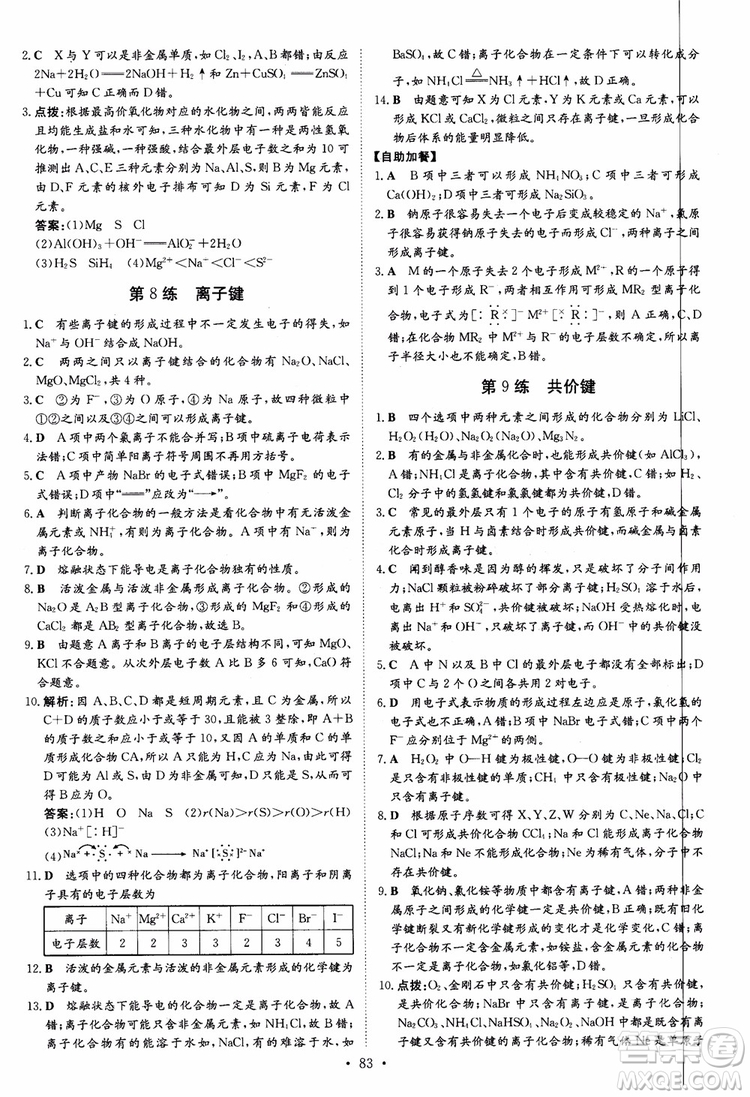 2. C　X与Y可以是非金属单质，如Cl₂、I₂，A错；由反应
2Na+2H₂O══2NaOH+H₂↑和Zn+CuSO₄══ZnSO₄
+Cu可推出B正确，C、D错。
3. 点拨：根据最高价氧化物对应的水化物之间，两两皆能反应
且均能生成盐和水，说明三种元素的水化物中有两性氢氧
化物，一种强碱，一种强酸，根据最外层电子数之和为10可
推测出A、C、D元素对应着Na、Al、S，且C与F形成CF
型化合物，F元素的核外电子排布可知B为Mg、F为Cl
元素。
答案：(1)Mg　S　Cl
(2)Al(OH)₃+OH⁻══AlO₂⁻+2H₂O
(3)H₂S　SiH₄　(4)Mg²⁺<Na⁺<Cl⁻<S²⁻
第8练　离子键
1. C　有些离子键的形成过程中不一定发生电子的得失，如
Na⁺与OH⁻结合成NaOH。
2. C　两两之间只以离子键结合的化合物有Na₂O、NaCl、
MgO、MgCl₂，共4种。
3. C　②为F⁻，③为O原子，④为Na原子，故四种微粒中
①②之间和③④之间易形成离子键。
4. D　A项中两个氯离子不能合并写；B项中硫离子电荷表示
法错误；C项中简单阳离子不用方括号。
5. D　A项中产物NaBr的电子式错误；B项中MgF₂的电子
式错误；D项中“══”应改为“→”。
6. A　判断离子化合物的一般方法是看化合物中有无活泼金
属元素或NH₄⁺，有的则为离子化合物，A项中无Na⁺，则为
非离子化合物。
7. D　熔融状态下能导电是离子化合物独有的性质。
8. B　活泼金属与活泼非金属形成离子化合物。②形成的
Na₂O是A₂B型离子化合物，③形成的MgF₂和④形成的
CaCl₂都为AB₂型离子化合物，故选B。
9. B　由题意A和B离子的电子层结构不同，可知MgO、
KCl不合题意。从次外层电子数B项为2，A项为8，则A不
合题意。
10. 解析：因A、B、C、D都是短周期元素，又C为金属，所以
C+D的质子数小于或等于30，且能被3整除，即A+B
的质子数之和小于或等于10，又因A和C的单质形成
离子化合物CA，所以A只能为H，C为Na，进而可推出
D可能为Al或S，因D的质子数大于C，且D与B同族，
所以B为O。
答案：(1)H　O　Na　S　(2)r(Na)>r(S)>r(O)>r(H)
(3)Na⁺[∶H]⁻
(4)Na×+·S·+×Na→Na⁺[∶S∶]²⁻Na⁺
11. D　选项中的四种化合物都为离子化合物，阳离子和阴离
子具有的电子层数为
离子 Na⁺ Mg²⁺ Ca²⁺ K⁺ F⁻ Cl⁻ Br⁻ I⁻
电子层数 2 2 3 3 2 3 4 5
12. B　活泼的金属元素与活泼的非金属元素化合时，可形成
离子键。
13. D　熔融状态下能导电的化合物一定为离子化合物，故A
错；离子化合物不一定含有金属元素，如NH₄Cl，故B错；
离子化合物有的能溶于水，如NaCl，有的难溶于水，如
BaSO₄，故C错；离子化合物的构成微粒可以转化成分
子，如NH₄Cl══△NH₃↑+HCl↑，故D正确。
14. B　由题意可知X为Cl元素，Y为K元素或Ca元素，可
形成KCl或CaCl₂，微粒之间均形成离子键，一旦形成化合
物后体系的能量明显降低。
【自助加餐】
1. A　B项中可形成NH₃、HNO₃等；C项中可形成
Ca(OH)₂；D项中可形成Na₂SiO₃。
2. B　钠原子很容易失去1个电子后变成较稳定的Na⁺，氟原
子很容易获得钠原子失去的电子形成稳定的F⁻，两者之
间形成离子键。
3. A　M的一个原子失去2个电子形成M²⁺，2个R原子各得
1个电子形成两个R⁻，M²⁺与R⁻形成MR₂型离子化
合物，电子式为[∶R∶]⁻M²⁺[∶R∶]⁻，故A正确，C、D
错误；因为M²⁺与R⁻的电子层数不确定，所以
离子半径大小不确定，B错。
第9练　共价键
1. B　四个选项中两种元素之间形成的化合物分别为LiCl、
H₂O₂(H₂O)、Na₂O₂(Na₂O)、Mg₃N₂。
2. B　金属与非金属化合时，也能形成共价键，如AlCl₃，A
错；离子化合物中可能含有共价键，其中含有共价键，C错；
水分子中的氢氧键和氢气中的氢氢键不同，D错。
3. C　最外层只有一个电子的原子可能是氢原子和碱金属
元素原子，H与卤素结合时形成共价键，而碱金属与卤素
化合时形成离子键。
4. C　闻到醇香味是因为醇的挥发，只是破坏了分子间作用
力；NaCl颗粒被粉碎破坏了离子键；H₂SO₄溶于水后，
电离出H⁺和SO₄²⁻，破坏了共价键；NaOH受热熔化时，
电离出Na⁺和OH⁻，只破坏了离子键，而没有破坏
共价键。
5. C　A中N与N之间应共用3对电子。
6. D　用电子式表示物质的形成过程左边应是原子，氯化氢的
电子式也不对，A项错；B项中NaBr电子式错；C项中两个
F⁻应分别位于Mg²⁺的两侧。
7. A　H₂O₂中H—O键为极性键，O—O键为非极性键；
CaCl₂中不含非极性键；CH₄中只含极性键；Na₂O₂中含有
离子键和非极性键。
8. D　根据原子序数可得X、Y、Z、W分别为C、Ne、Na、Cl，C
和Cl能形成共价化合物CCl₄；Na和Cl能形成离子化合物
NaCl；Na和Ne不能形成化合物；Ne为稀有气体，分子中
不含共价键。
9. B　氧化钠、氯化铵等物质中都含有离子键；由非金属元
素组成的化合物中的化学键一定是极性键；既有旧化
学键断裂又有新化学键形成的变化才是化学变化；非金
属元素间也能形成离子键，如铵盐，含有金属元素的化
合物不一定是离子化合物，如氯化铝等。
10. 点拨：O₂、金刚石中只含共价键；NaBr中只含有离子键；
H₂SO₄中只含共价键，是共价化合物；
Na₂CO₃、NH₄Cl、NaHSO₄、Na₂O₂、NaOH中既含有离
子键又含有共价键，是离子化合物；稀有气体Ne是单原子
83